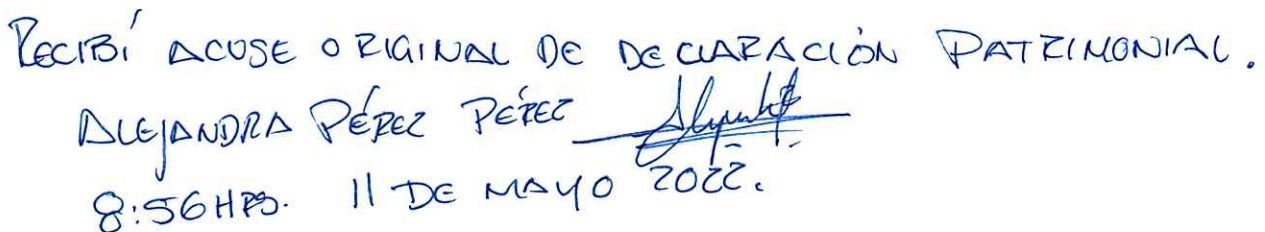 RECIBÍ ACUSE ORIGINAL DE DECLARACIÓN PATRIMONIAL.
ALEJANDRA PÉREZ PÉREZ
8:56 HRS. 11 DE MAYO 2022.